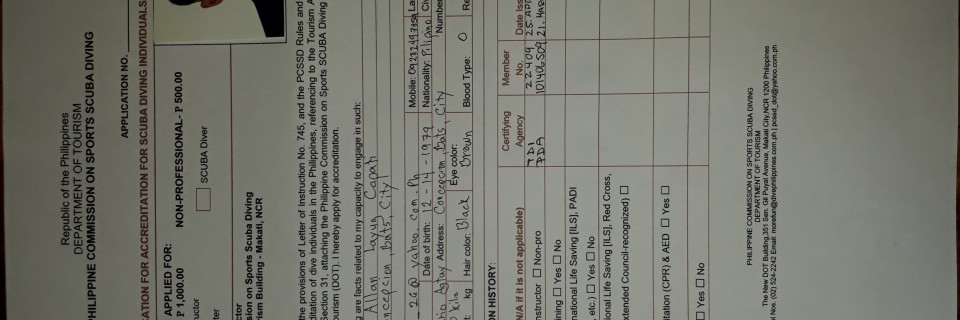 Republic of the Philippines
DEPARTMENT OF TOURISM
HILIPPINE COMMISSION ON SPORTS SCUBA DIVING
APPLICATION NO.
CATION FOR ACCREDITATION FOR SCUBA DIVING INDIVIDUALS
APPLIED FOR:
P 1,000.00 NON-PROFESSIONAL- P 500.00
uctor SCUBA Diver
ter
ctor
sion on Sports Scuba Diving
rism Building - Makati, NCR
the provisions of Letter of Instruction No. 745, and the PCSSD Rules and
ditation of dive individuals in the Philippines, referencing to the Tourism A
Section 31, attaching the Philippine Commission on Sports SCUBA Diving
ourism (DOT), I hereby apply for accreditation.
g are facts related to my capacity to engage in such:
Allan Layug Capati
ncepcion, Bats, City
-26@yahoo.com.ph Mobile: La
Date of birth: 12-14-1979 Nationality: Filipino Ci
Address: Concepcion, Bats, City Number
kilo Eye color:
t: kg Hair color: Black Brown Blood Type: O Re
ON HISTORY:
N/A if it is not applicable) Certifying Agency Member No. Date Iss
nstructor Non-pro TDI 22409 25. APR
PDA 101406509 21. MAR
ining Yes No
national Life Saving [ILS], PADI
, etc.) Yes No
ional Life Saving [ILS], Red Cross,
xtended Council-recognized)
itation (CPR) & AED Yes
Yes No
PHILIPPINE COMMISSION ON SPORTS SCUBA DIVING
DEPARTMENT OF TOURISM
The New DOT Building,351 Sen. Gil Puyat Avenue, Makati City,NCR 1200 Philippines